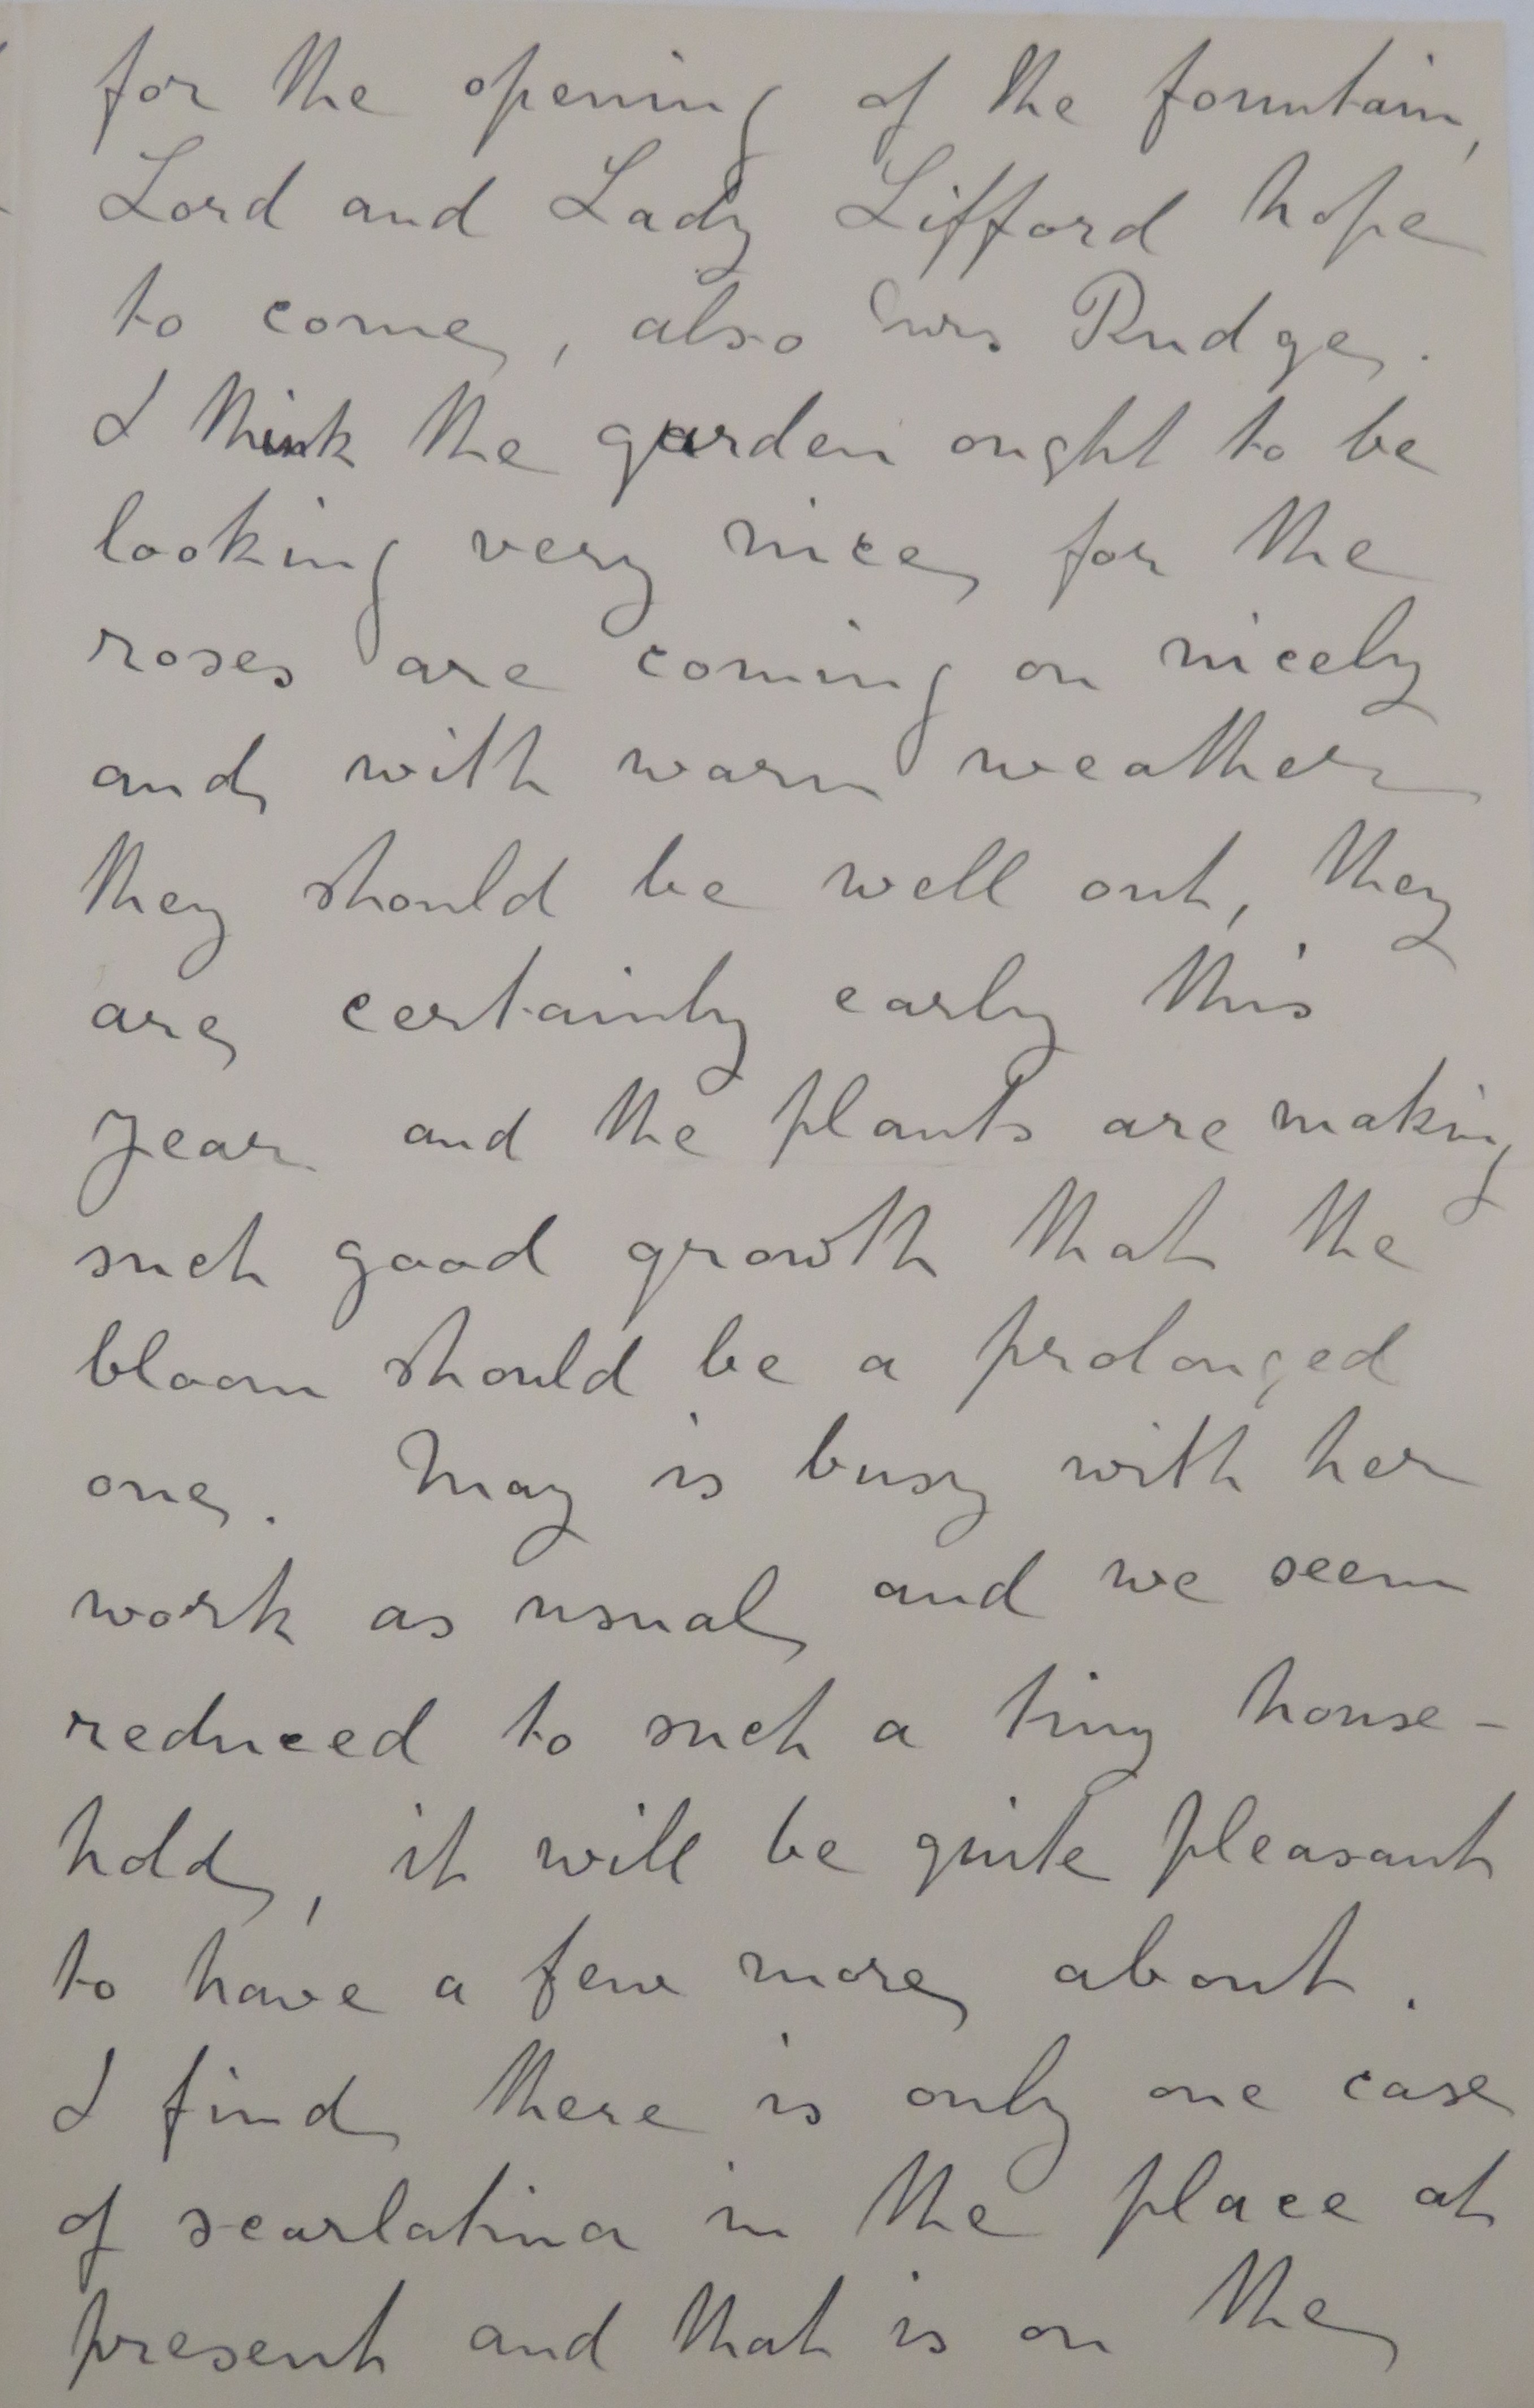 for the opening of the fountain,
Lord and Lady Lifford hope
to come, also Mrs Rudge.
I think the garden ought to be
looking very nice for the
roses are coming on nicely
and with warm weather
they should be well out, they
are certainly early this
year and the plants are making
such good growth that the
bloom should be a prolonged
one. May is busy with her
work as usual and we seem
reduced to such a tiny house-
hold, it will be quite pleasant
to have a few more about.
I find there is only one case
of scarlatina in the place at
present and that is on the